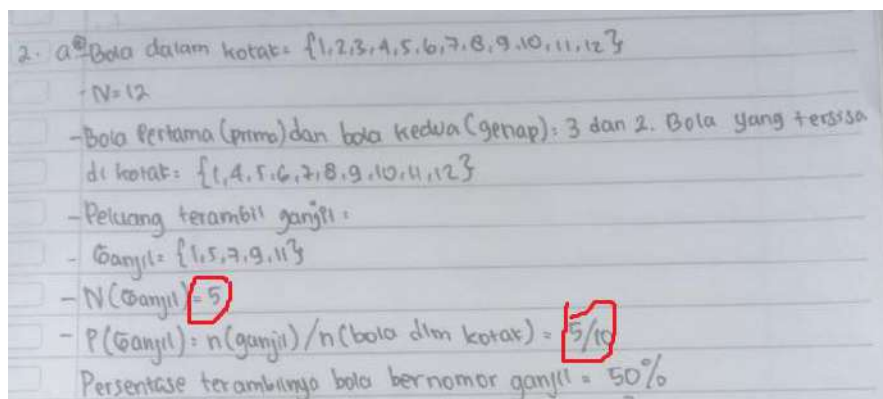 2. a Bola dalam kotak = {1,2,3,4,5,6,7,8,9,10,11,12}
- N=12
- Bola Pertama (prima) dan bola kedua (genap): 3 dan 2. Bola yang tersisa
di kotak: {1,4,5,6,7,8,9,10,11,12}
- Peluang terambil ganjil:
- Ganjil = {1,5,7,9,11}
- N(Ganjil) = 5
- P(Ganjil) = n(ganjil)/n(bola dlm kotak) = 5/10
Persentase terambilnya bola bernomor ganjil = 50%